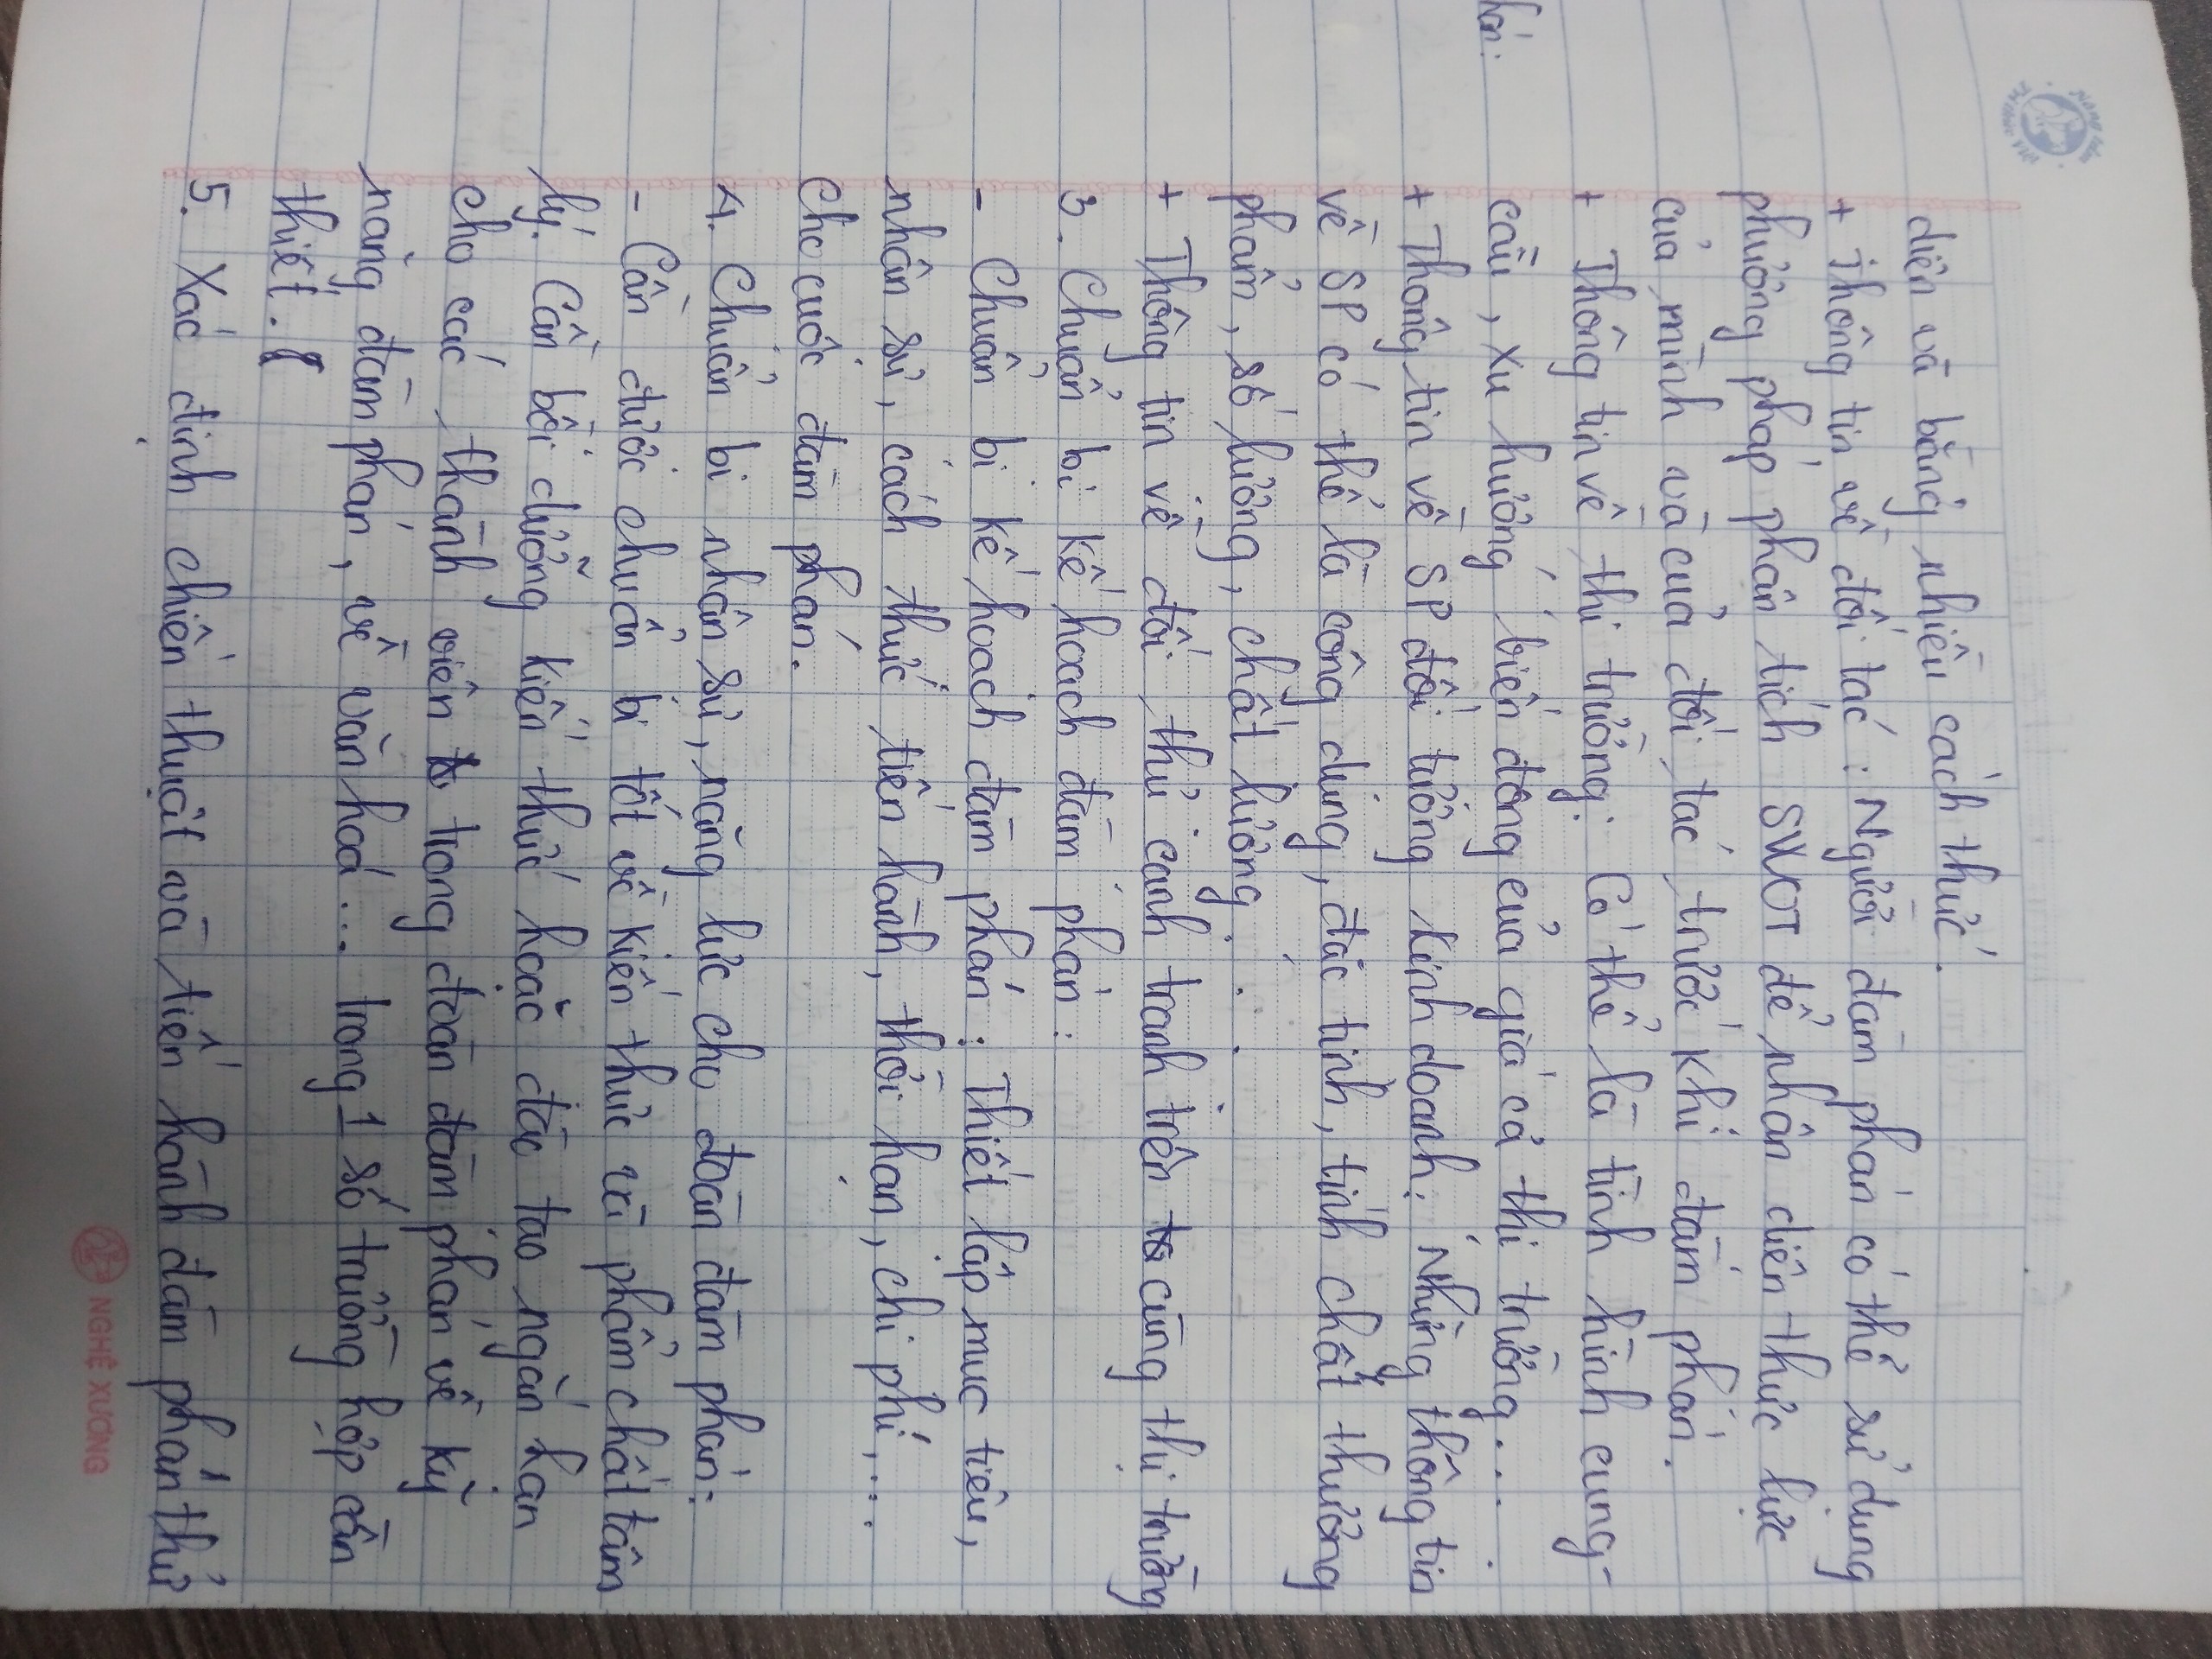 diện và bằng nhiều cách thức.
+ Thông tin về đối tác : Người đàm phán có thể sử dụng
phương pháp phân tích SWOT để nhận diện thực lực
của mình và của đối tác trước khi đàm phán.
+ Thông tin về thị trường: Có thể là tình hình cung-
cầu, xu hướng biến động của giá cả thị trường...
+ Thông tin về SP đối tượng kinh doanh: Những thông tin
về SP có thể là công dụng, đặc tính, tính chất thương
phẩm, số lượng, chất lượng...
+ Thông tin về đối thủ cạnh tranh trên cùng thị trường
3. Chuẩn bị kế hoạch đàm phán:
- Chuẩn bị kế hoạch đàm phán : Thiết lập mục tiêu,
nhân sự, cách thức tiến hành, thời hạn, chi phí,...
cho cuộc đàm phán.
4. Chuẩn bị nhân sự, năng lực cho đoàn đàm phán:
- Cần được chuẩn bị tốt về kiến thức và phẩm chất tâm
lý. Cần bồi dưỡng kiến thức hoặc đào tạo ngắn hạn
cho các thành viên trong đoàn đàm phán về kỹ
năng đàm phán, về văn hoá... trong 1 số trường hợp cần
thiết.
5. Xác định chiến thuật và tiến hành đàm phán thử
NGHỆ XƯƠNG